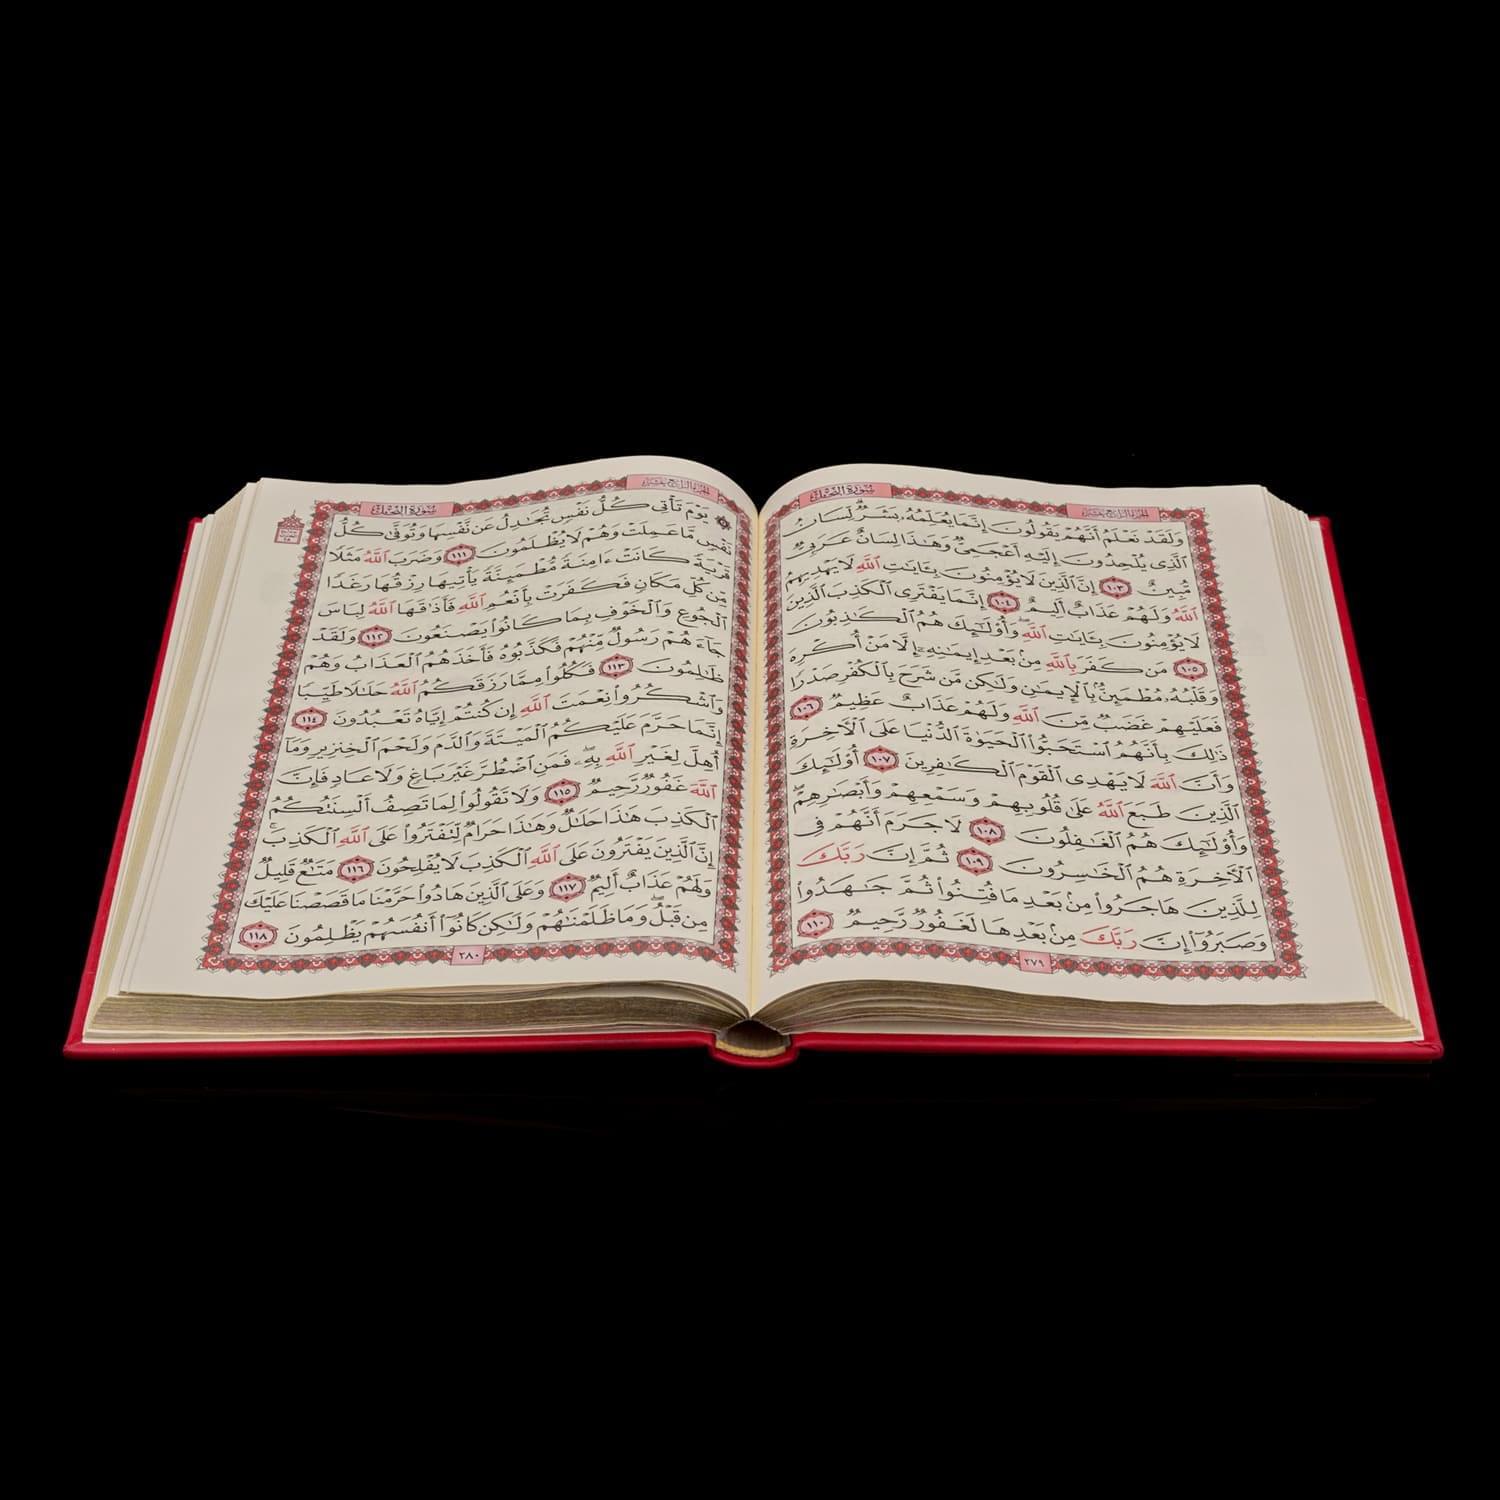 سُورَةُ النَّحْلِ
الجُزْءُ الرَّابِعُ عَشَرَ
وَلَقَدْ نَعْلَمُ أَنَّهُمْ يَقُولُونَ إِنَّمَا يُعَلِّمُهُۥ بَشَرٌۗ لِّسَانُ
ٱلَّذِى يُلْحِدُونَ إِلَيْهِ أَعْجَمِىٌّ وَهَٰذَا لِسَانٌ عَرَبِىٌّ
مُّبِينٌ ١٠٣ إِنَّ ٱلَّذِينَ لَا يُؤْمِنُونَ بِـَٔايَٰتِ ٱللَّهِ لَا يَهْدِيهِمُ
ٱللَّهُ وَلَهُمْ عَذَابٌ أَلِيمٌ ١٠٤ إِنَّمَا يَفْتَرِى ٱلْكَذِبَ ٱلَّذِينَ
لَا يُؤْمِنُونَ بِـَٔايَٰتِ ٱللَّهِۖ وَأُوْلَٰٓئِكَ هُمُ ٱلْكَٰذِبُونَ
١٠٥ مَن كَفَرَ بِٱللَّهِ مِنۢ بَعْدِ إِيمَٰنِهِۦٓ إِلَّا مَنْ أُكْرِهَ
وَقَلْبُهُۥ مُطْمَئِنٌّۢ بِٱلْإِيمَٰنِ وَلَٰكِن مَّن شَرَحَ بِٱلْكُفْرِ صَدْرًا
فَعَلَيْهِمْ غَضَبٌ مِّنَ ٱللَّهِ وَلَهُمْ عَذَابٌ عَظِيمٌ ١٠٦
ذَٰلِكَ بِأَنَّهُمُ ٱسْتَحَبُّوا۟ ٱلْحَيَوٰةَ ٱلدُّنْيَا عَلَى ٱلْءَاخِرَةِ
وَأَنَّ ٱللَّهَ لَا يَهْدِى ٱلْقَوْمَ ٱلْكَٰفِرِينَ ١٠٧ أُوْلَٰٓئِكَ
ٱلَّذِينَ طَبَعَ ٱللَّهُ عَلَىٰ قُلُوبِهِمْ وَسَمْعِهِمْ وَأَبْصَٰرِهِمْۖ
وَأُوْلَٰٓئِكَ هُمُ ٱلْغَٰفِلُونَ ١٠٨ لَا جَرَمَ أَنَّهُمْ فِى
ٱلْءَاخِرَةِ هُمُ ٱلْخَٰسِرُونَ ١٠٩ ثُمَّ إِنَّ رَبَّكَ
لِلَّذِينَ هَاجَرُوا۟ مِنۢ بَعْدِ مَا فُتِنُوا۟ ثُمَّ جَٰهَدُوا۟
وَصَبَرُوٓا۟ إِنَّ رَبَّكَ مِنۢ بَعْدِهَا لَغَفُورٌ رَّحِيمٌ ١١٠
٢٧٩
الجُزْءُ الرَّابِعُ عَشَرَ
سُورَةُ النَّحْلِ
۞ يَوْمَ تَأْتِى كُلُّ نَفْسٍ تُجَٰدِلُ عَن نَّفْسِهَا وَتُوَفَّىٰ كُلُّ
نَفْسٍ مَّا عَمِلَتْ وَهُمْ لَا يُظْلَمُونَ ١١١ وَضَرَبَ ٱللَّهُ مَثَلًا
قَرْيَةً كَانَتْ ءَامِنَةً مُّطْمَئِنَّةً يَأْتِيهَا رِزْقُهَا رَغَدًا
مِّن كُلِّ مَكَانٍ فَكَفَرَتْ بِأَنْعُمِ ٱللَّهِ فَأَذَٰقَهَا ٱللَّهُ لِبَاسَ
ٱلْجُوعِ وَٱلْخَوْفِ بِمَا كَانُوا۟ يَصْنَعُونَ ١١٢ وَلَقَدْ
جَآءَهُمْ رَسُولٌ مِّنْهُمْ فَكَذَّبُوهُ فَأَخَذَهُمُ ٱلْعَذَابُ وَهُمْ
ظَٰلِمُونَ ١١٣ فَكُلُوا۟ مِمَّا رَزَقَكُمُ ٱللَّهُ حَلَٰلًا طَيِّبًا
وَٱشْكُرُوا۟ نِعْمَتَ ٱللَّهِ إِن كُنتُمْ إِيَّاهُ تَعْبُدُونَ ١١٤
إِنَّمَا حَرَّمَ عَلَيْكُمُ ٱلْمَيْتَةَ وَٱلدَّمَ وَلَحْمَ ٱلْخِنزِيرِ وَمَآ
أُهِلَّ لِغَيْرِ ٱللَّهِ بِهِۦۖ فَمَنِ ٱضْطُرَّ غَيْرَ بَاغٍ وَلَا عَادٍ فَإِنَّ
ٱللَّهَ غَفُورٌ رَّحِيمٌ ١١٥ وَلَا تَقُولُوا۟ لِمَا تَصِفُ أَلْسِنَتُكُمُ
ٱلْكَذِبَ هَٰذَا حَلَٰلٌ وَهَٰذَا حَرَامٌ لِّتَفْتَرُوا۟ عَلَى ٱللَّهِ ٱلْكَذِبَۚ
إِنَّ ٱلَّذِينَ يَفْتَرُونَ عَلَى ٱللَّهِ ٱلْكَذِبَ لَا يُفْلِحُونَ ١١٦ مَتَٰعٌ قَلِيلٌ
وَلَهُمْ عَذَابٌ أَلِيمٌ ١١٧ وَعَلَى ٱلَّذِينَ هَادُوا۟ حَرَّمْنَا مَا قَصَصْنَا عَلَيْكَ
مِن قَبْلُۖ وَمَا ظَلَمْنَٰهُمْ وَلَٰكِن كَانُوٓا۟ أَنفُسَهُمْ يَظْلِمُونَ ١١٨
٢٨٠